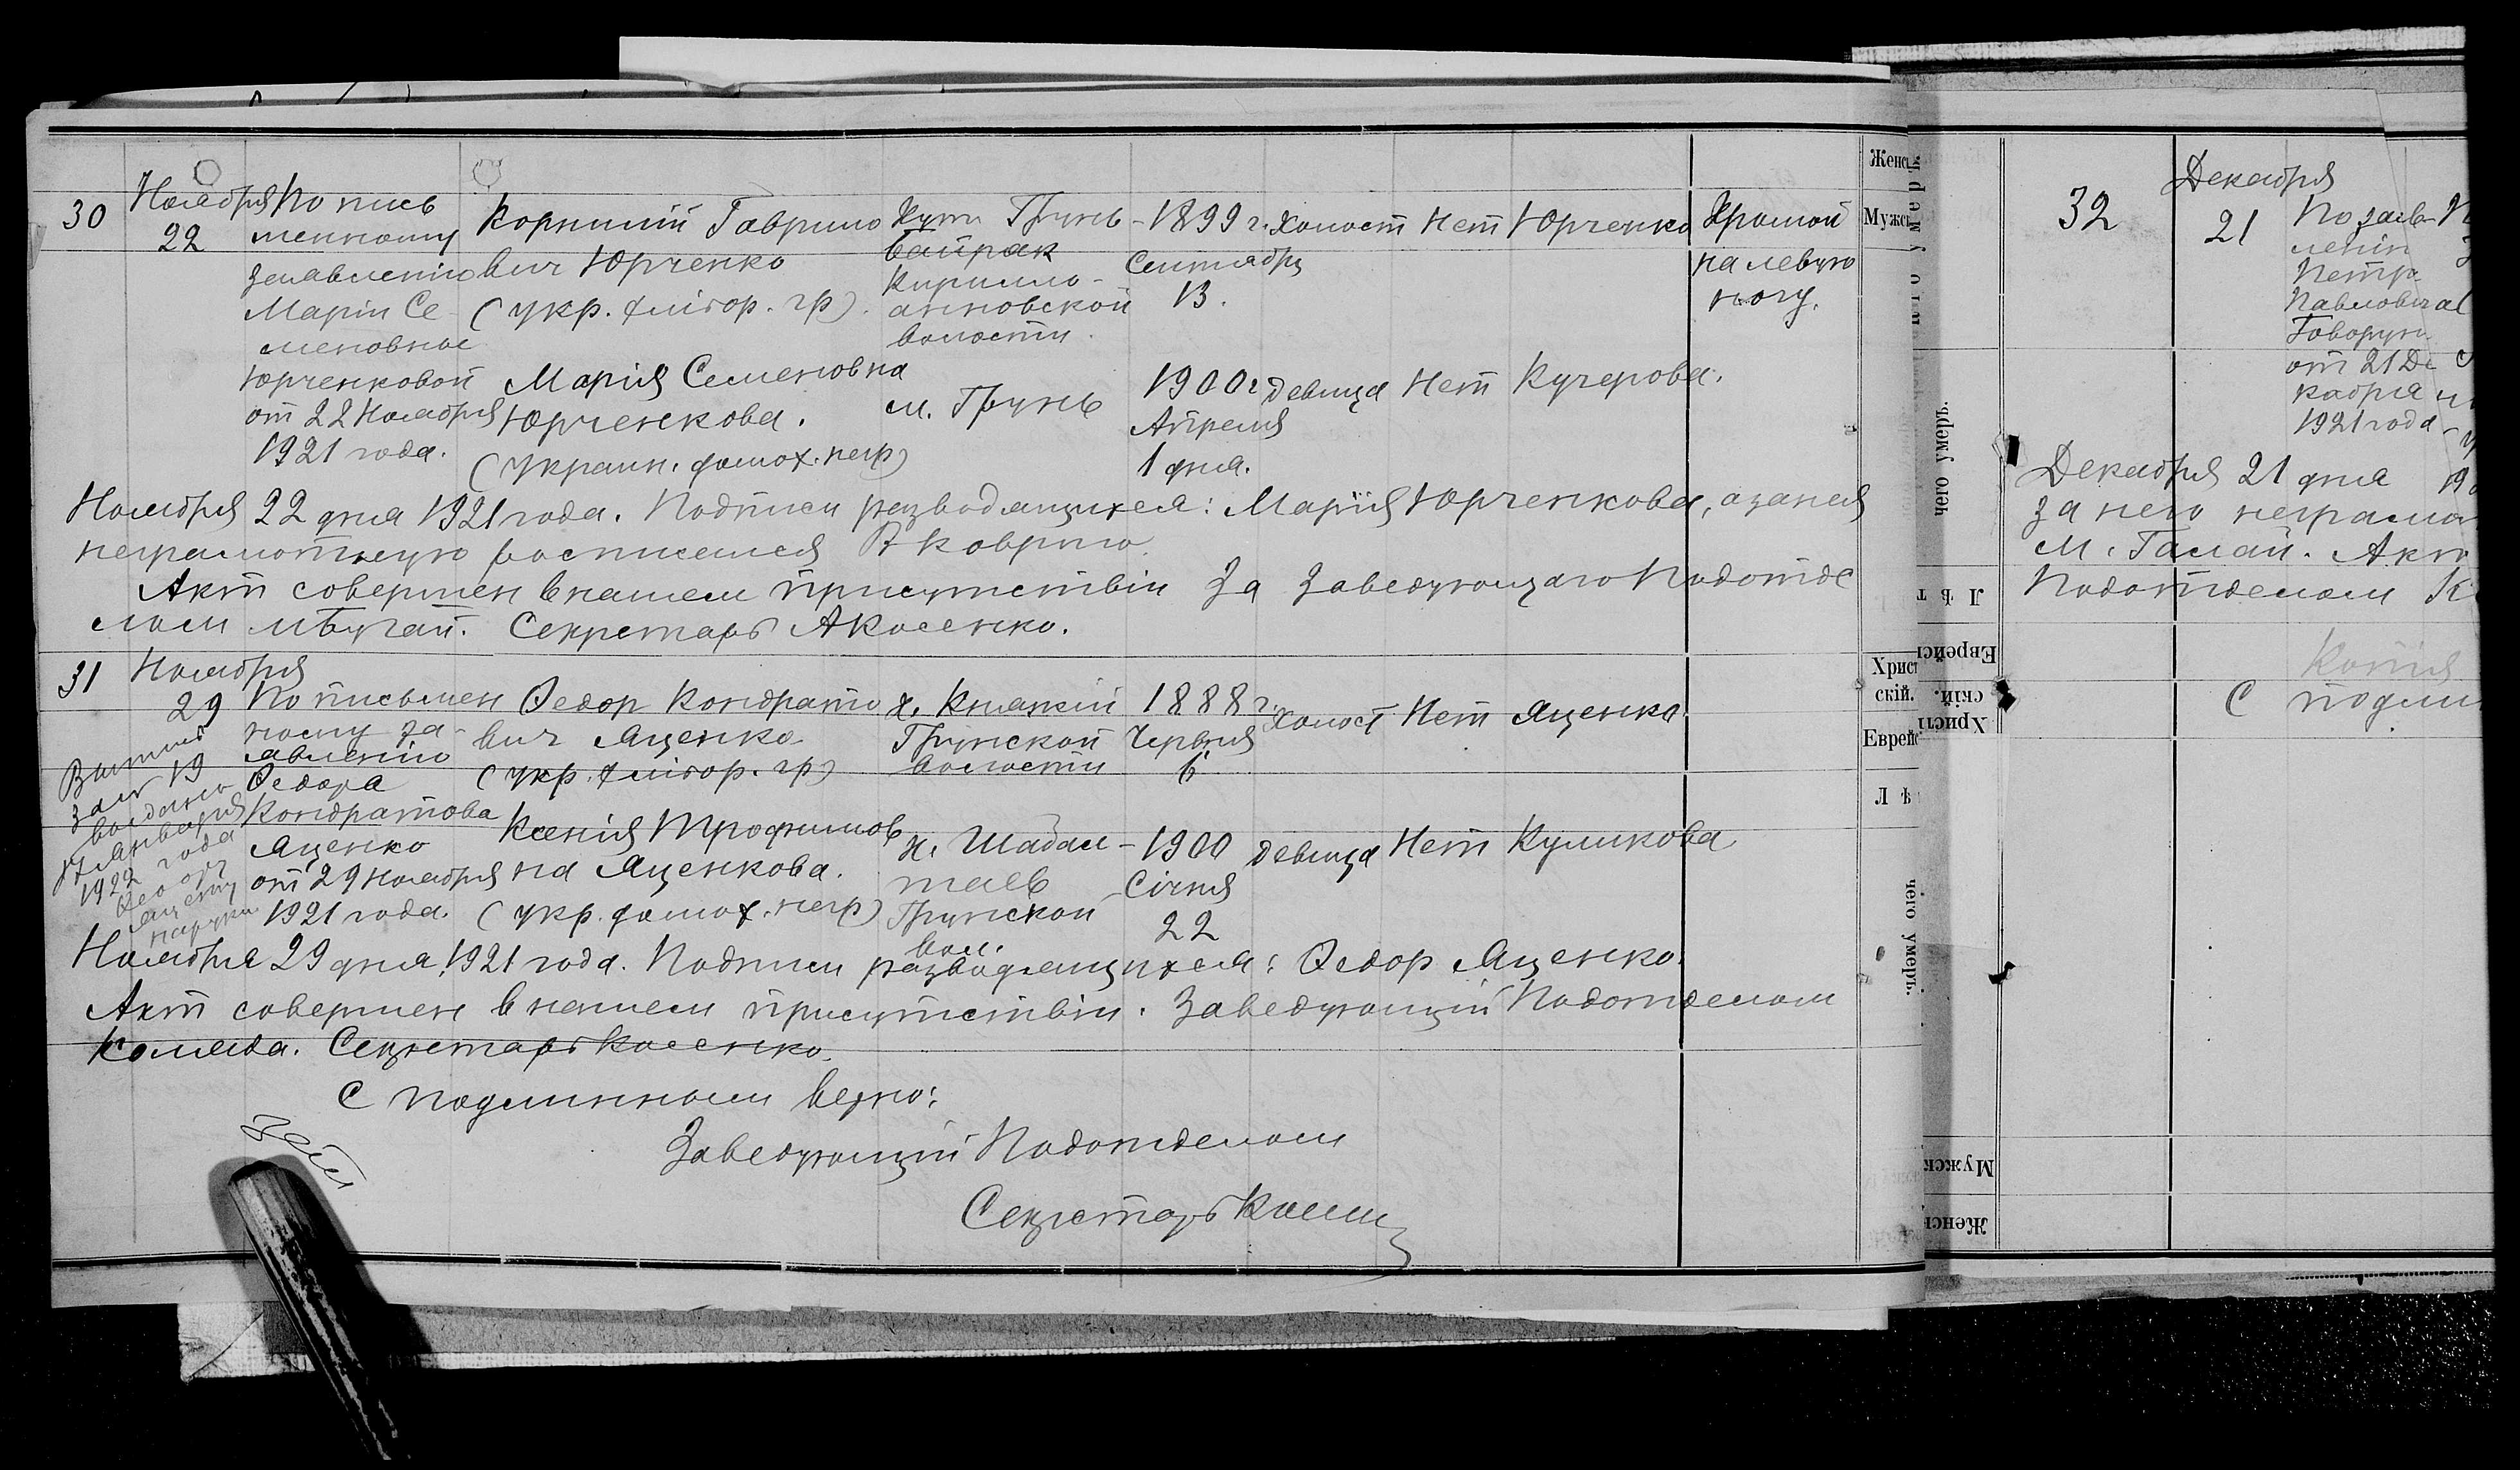 30
Ноября
22
По пись
менному
заявлению
Маріи Се
меновное
Юрченковой
от 22 Ноября
1921 года.
Корнилий Гаврило
вич Юрченко
(укр. хлібор. гр).
Хут. Грунь
Байрак
Кирилло-
анновской
волости.
1899 г.
Сентября
13.
Холост
Нет
Юрченко
Хромой
на левую
ногу.
Марія Семеновна
Юрченкова.
(украин. домох. негр)
м. Грунь
1900 г.
Апреля
1 дня.
девица
Нет
Кучерова.
Ноября 22 дня 1921 года. Подписи разводящихся: Марія Юрченкова, а за нея
неграмотную росписался
Акт совершен в нашем присутствіи За Заведующаго Подотде
лом Секретарь А Косенко.
31
Ноября
29
По письмен
ному за-
явлению
Федора
Кондратова
Яценко
от 29 Ноября
1921 года.
Федор Кондрато
вич Яценко
(укр. хлібор. гр)
х. Княжий
Грунской
волости
1888 г.
Червня
6
Холост
Нет
Яценко.
19
Января
1922 года
Яценку
на руки
Ксенія Трофимов
на Яценкова.
(укр. домох. негр)
х. Шадал
таев
Грунской
вол.
1900
Січня
22
девица
Нет
Куликова
Ноября 29 дня, 1921 года. Подписи разводящихся: Федор Яценко.
Акт совершен в нашем присутствіи. Заведующий Подотделом
Коляда. Секретарь Косенко.
С подлинным верно:
Заведующий Подотделом
Секретарь
Женс
Мужс
чего умеръ.
Хрис
скій.
Еврейс
Л ѣ
чего умеръ.
Л ѣ т
Еврейс
Христ
скій.
Мужск
Женск
32
Декабря
21
По заяв
лению
Петр
Павлович
Говорун
от 21 Де
кабря
1921 года
Декабря 21 дня
за него неграмо
М. Галай. Акт
Подотделом К
Копія
С подли